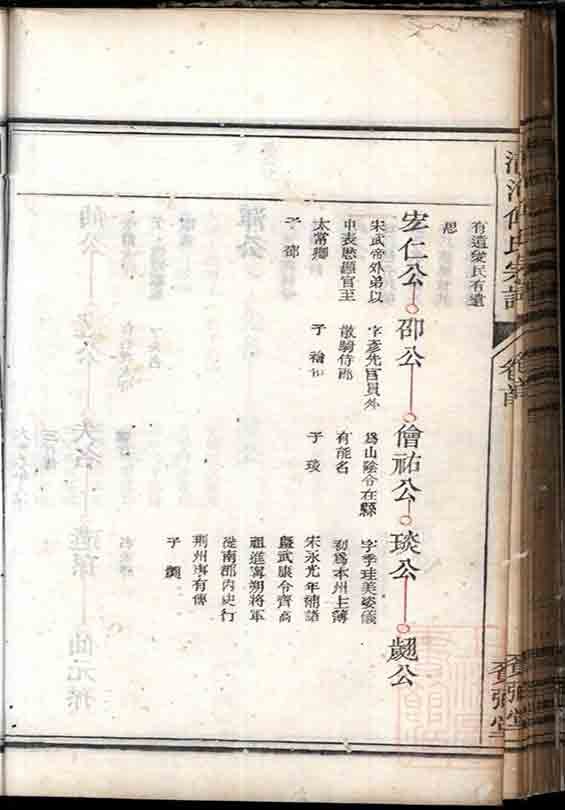 清河傅氏宗譜
卷首
賚弼堂
有遺愛民有遺
思
宏仁公
宋武帝外弟以
中表歷顯官至
太常卿
子 邵
邵公
字彥先官員外
散騎侍郎
子
僧祐公
為山陰令在縣
有能名
子 琰
琰公
字季珪美姿儀
初為本州主簿
宋永光年補諸
暨武康令齊高
祖進寧朔將軍
從南郡內史行
荊州事有傳
子 翽
翽公